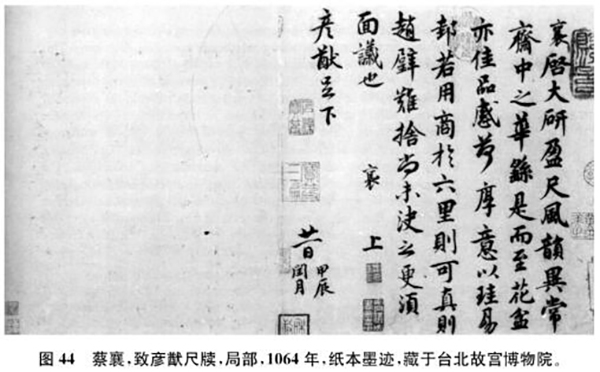 襄啓大研盈尺風韻異常
齋中之華繇是而至花盆
亦佳品感荷厚意以珪易
邽若用商於六里則可真則
趙璧難捨尚未決之更須
面議也 襄 上
彥猷足下
廿一日 甲辰閏月
图 44 蔡襄,致彦猷尺牍,局部,1064 年,纸本墨迹,藏于台北故宫博物院。